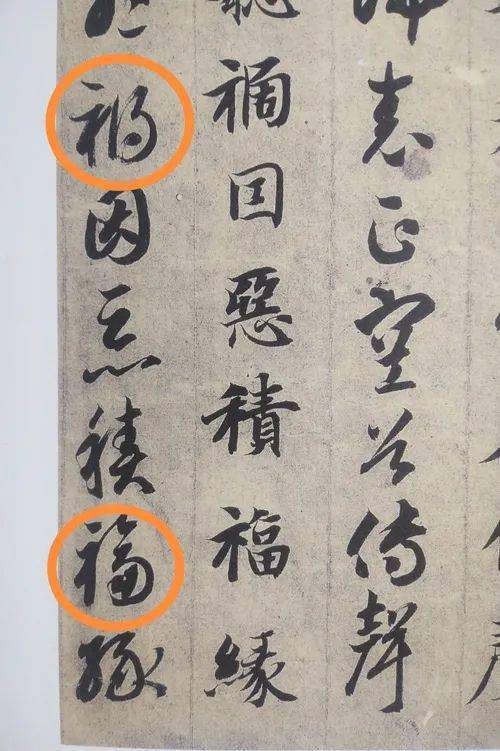 表正空谷傳聲
聽禍囙惡積福緣
禍因惡積福緣